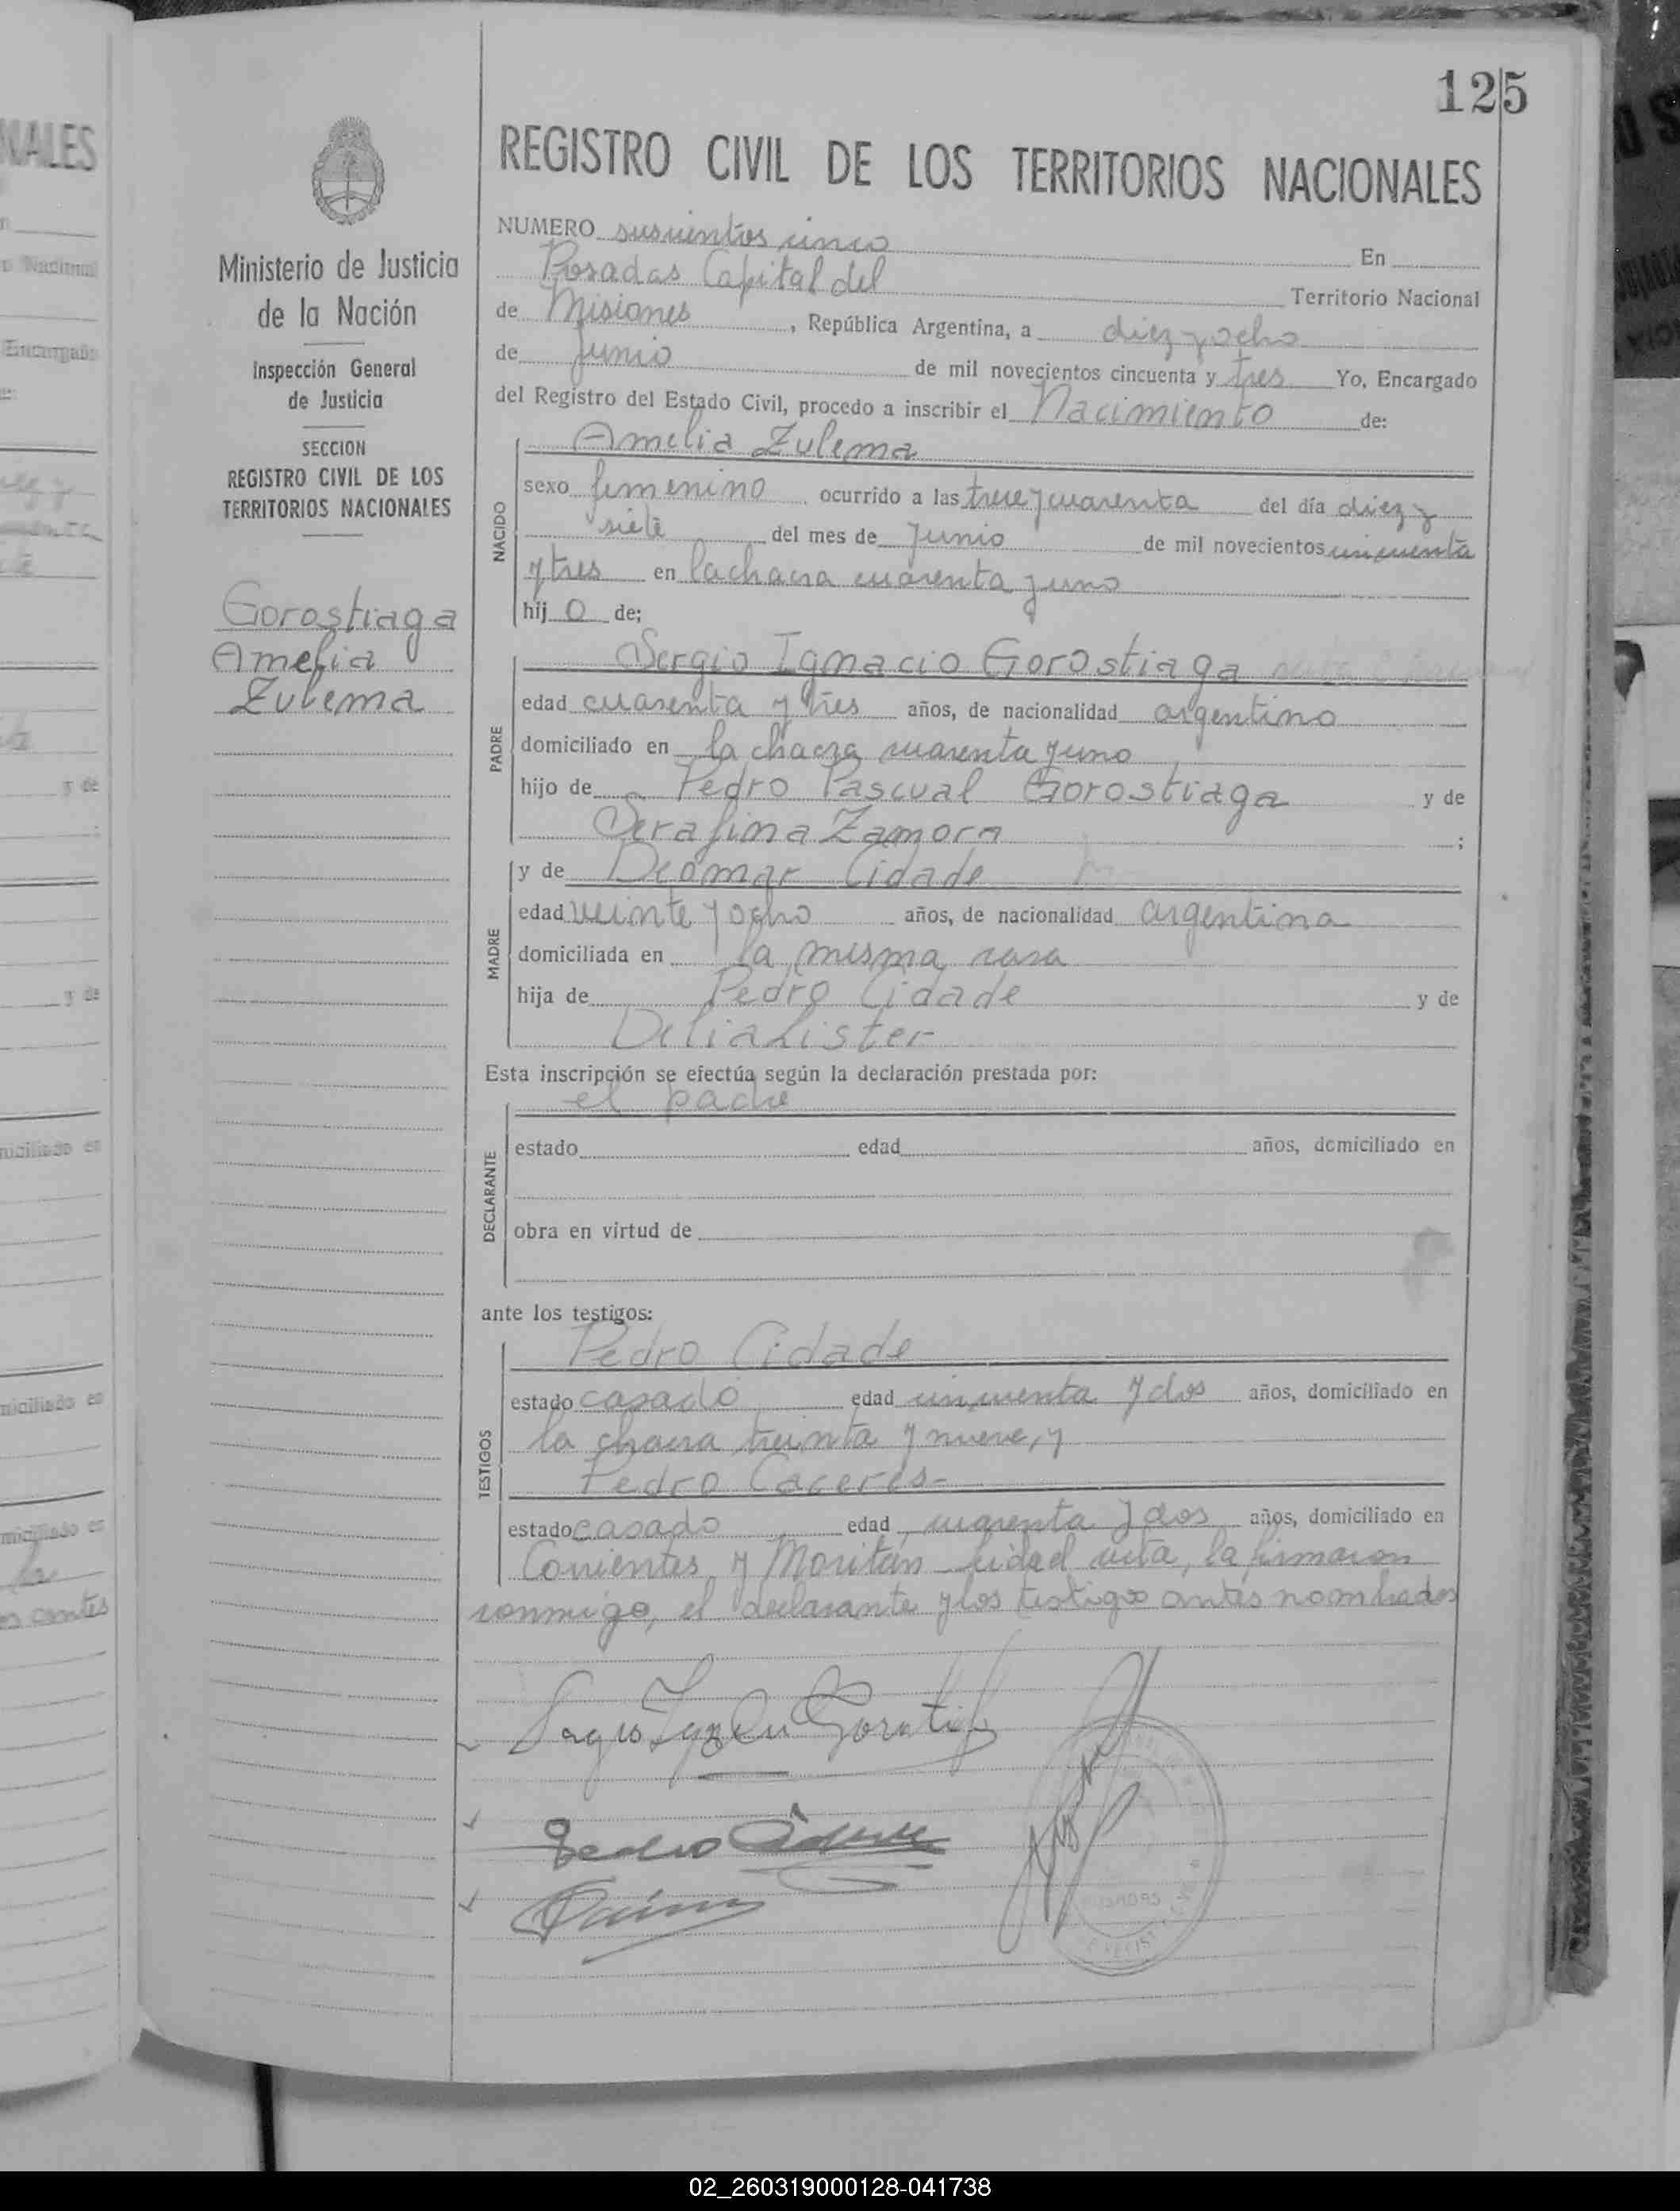 125
REGISTRO CIVIL DE LOS TERRITORIOS NACIONALES
Ministerio de Justicia
de la Nación
Inspección General
de Justicia
SECCION
REGISTRO CIVIL DE LOS
TERRITORIOS NACIONALES
Gorostiaga
Amelia
Zulema
NUMERO cinco En
Posadas Capital del Territorio Nacional
de Misiones, República Argentina, a diez y ocho
de Junio de mil novecientos cincuenta y tres Yo, Encargado
del Registro del Estado Civil, procedo a inscribir el Nacimiento de:
NACIDO
Amelia Zulema
sexo femenino ocurrido a las trece y cuarenta del día diez y
siete del mes de Junio de mil novecientos cincuenta
y tres en la chacra cuarenta y uno
hij o de;
PADRE
Sergio Ignacio Gorostiaga
edad cuarenta y tres años, de nacionalidad argentino
domiciliado en la chacra cuarenta y uno
hijo de Pedro Pascual Gorostiaga y de
Serafina Zamora ;
MADRE
y de Deomar Cidade
edad veinte y ocho años, de nacionalidad argentina
domiciliada en la misma casa
hija de Pedro Cidade y de
Delia Lister
Esta inscripción se efectúa según la declaración prestada por:
DECLARANTE
el padre
estado edad años, domiciliado en
obra en virtud de
ante los testigos:
TESTIGOS
Pedro Cidade
estado casado edad cincuenta y dos años, domiciliado en
la chacra treinta y nueve, y
Pedro Caceres-
estado casado edad cuarenta y dos años, domiciliado en
Corrientes y Moritán Leida el acta, la firmaron
conmigo, el declarante y los testigos antes nombrados
POSADAS
02_260319000128-041738